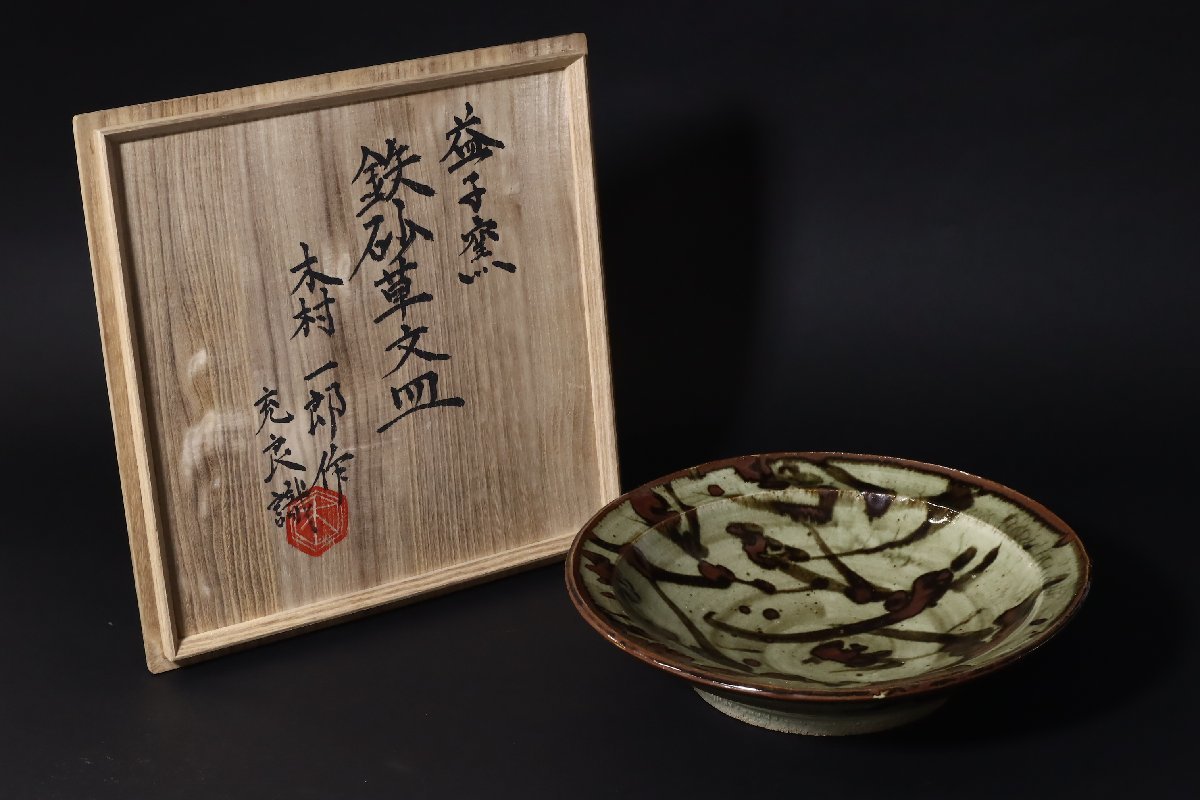 益子窯
鉄砂草文皿
木村一郎作
充良識